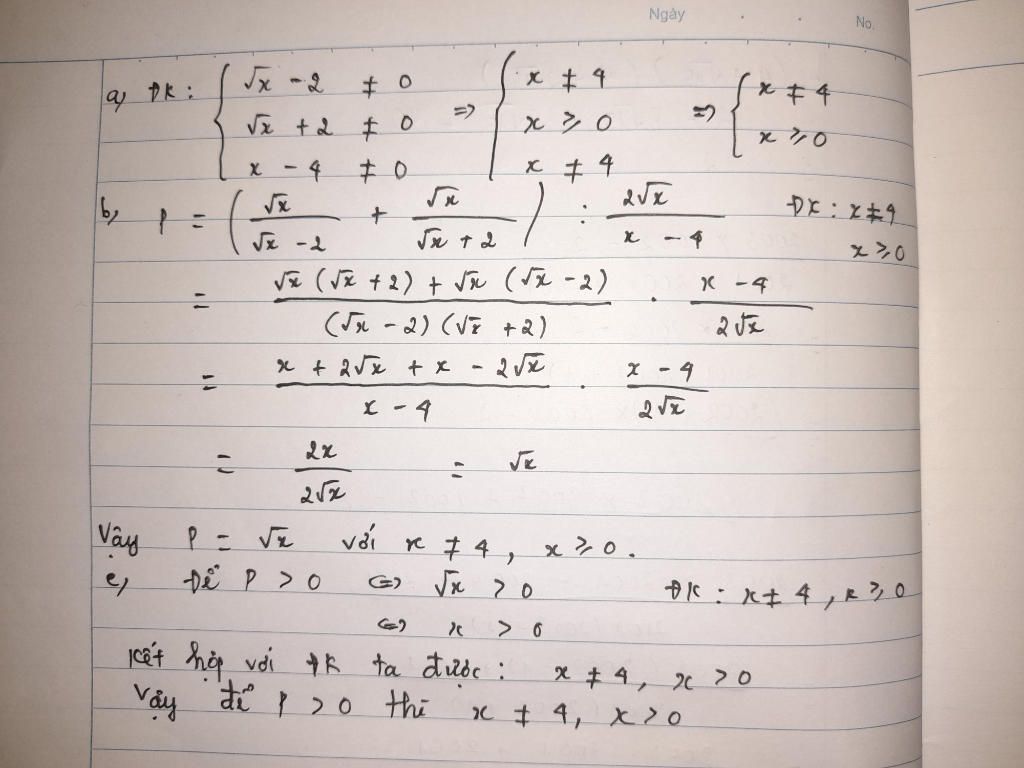 Ngày . . No.
a, ĐK: { √x - 2 ≠ 0 => { x ≠ 4 => { x ≠ 4
√x + 2 ≠ 0 x ⩾ 0 x ⩾ 0
x - 4 ≠ 0 x ≠ 4
b, P = ( √x / (√x - 2) + √x / (√x + 2) ) : 2√x / (x - 4) ĐK: x ≠ 4
x ⩾ 0
= (√x (√x + 2) + √x (√x - 2)) / ((√x - 2) (√x + 2)) . (x - 4) / (2√x)
= (x + 2√x + x - 2√x) / (x - 4) . (x - 4) / (2√x)
= 2x / (2√x) = √x
Vậy P = √x với x ≠ 4, x ⩾ 0.
c, Để P > 0 <=> √x > 0 ĐK: x ≠ 4, x ⩾ 0
<=> x > 0
Kết hợp với ĐK ta được: x ≠ 4, x > 0
Vậy để P > 0 thì x ≠ 4, x > 0